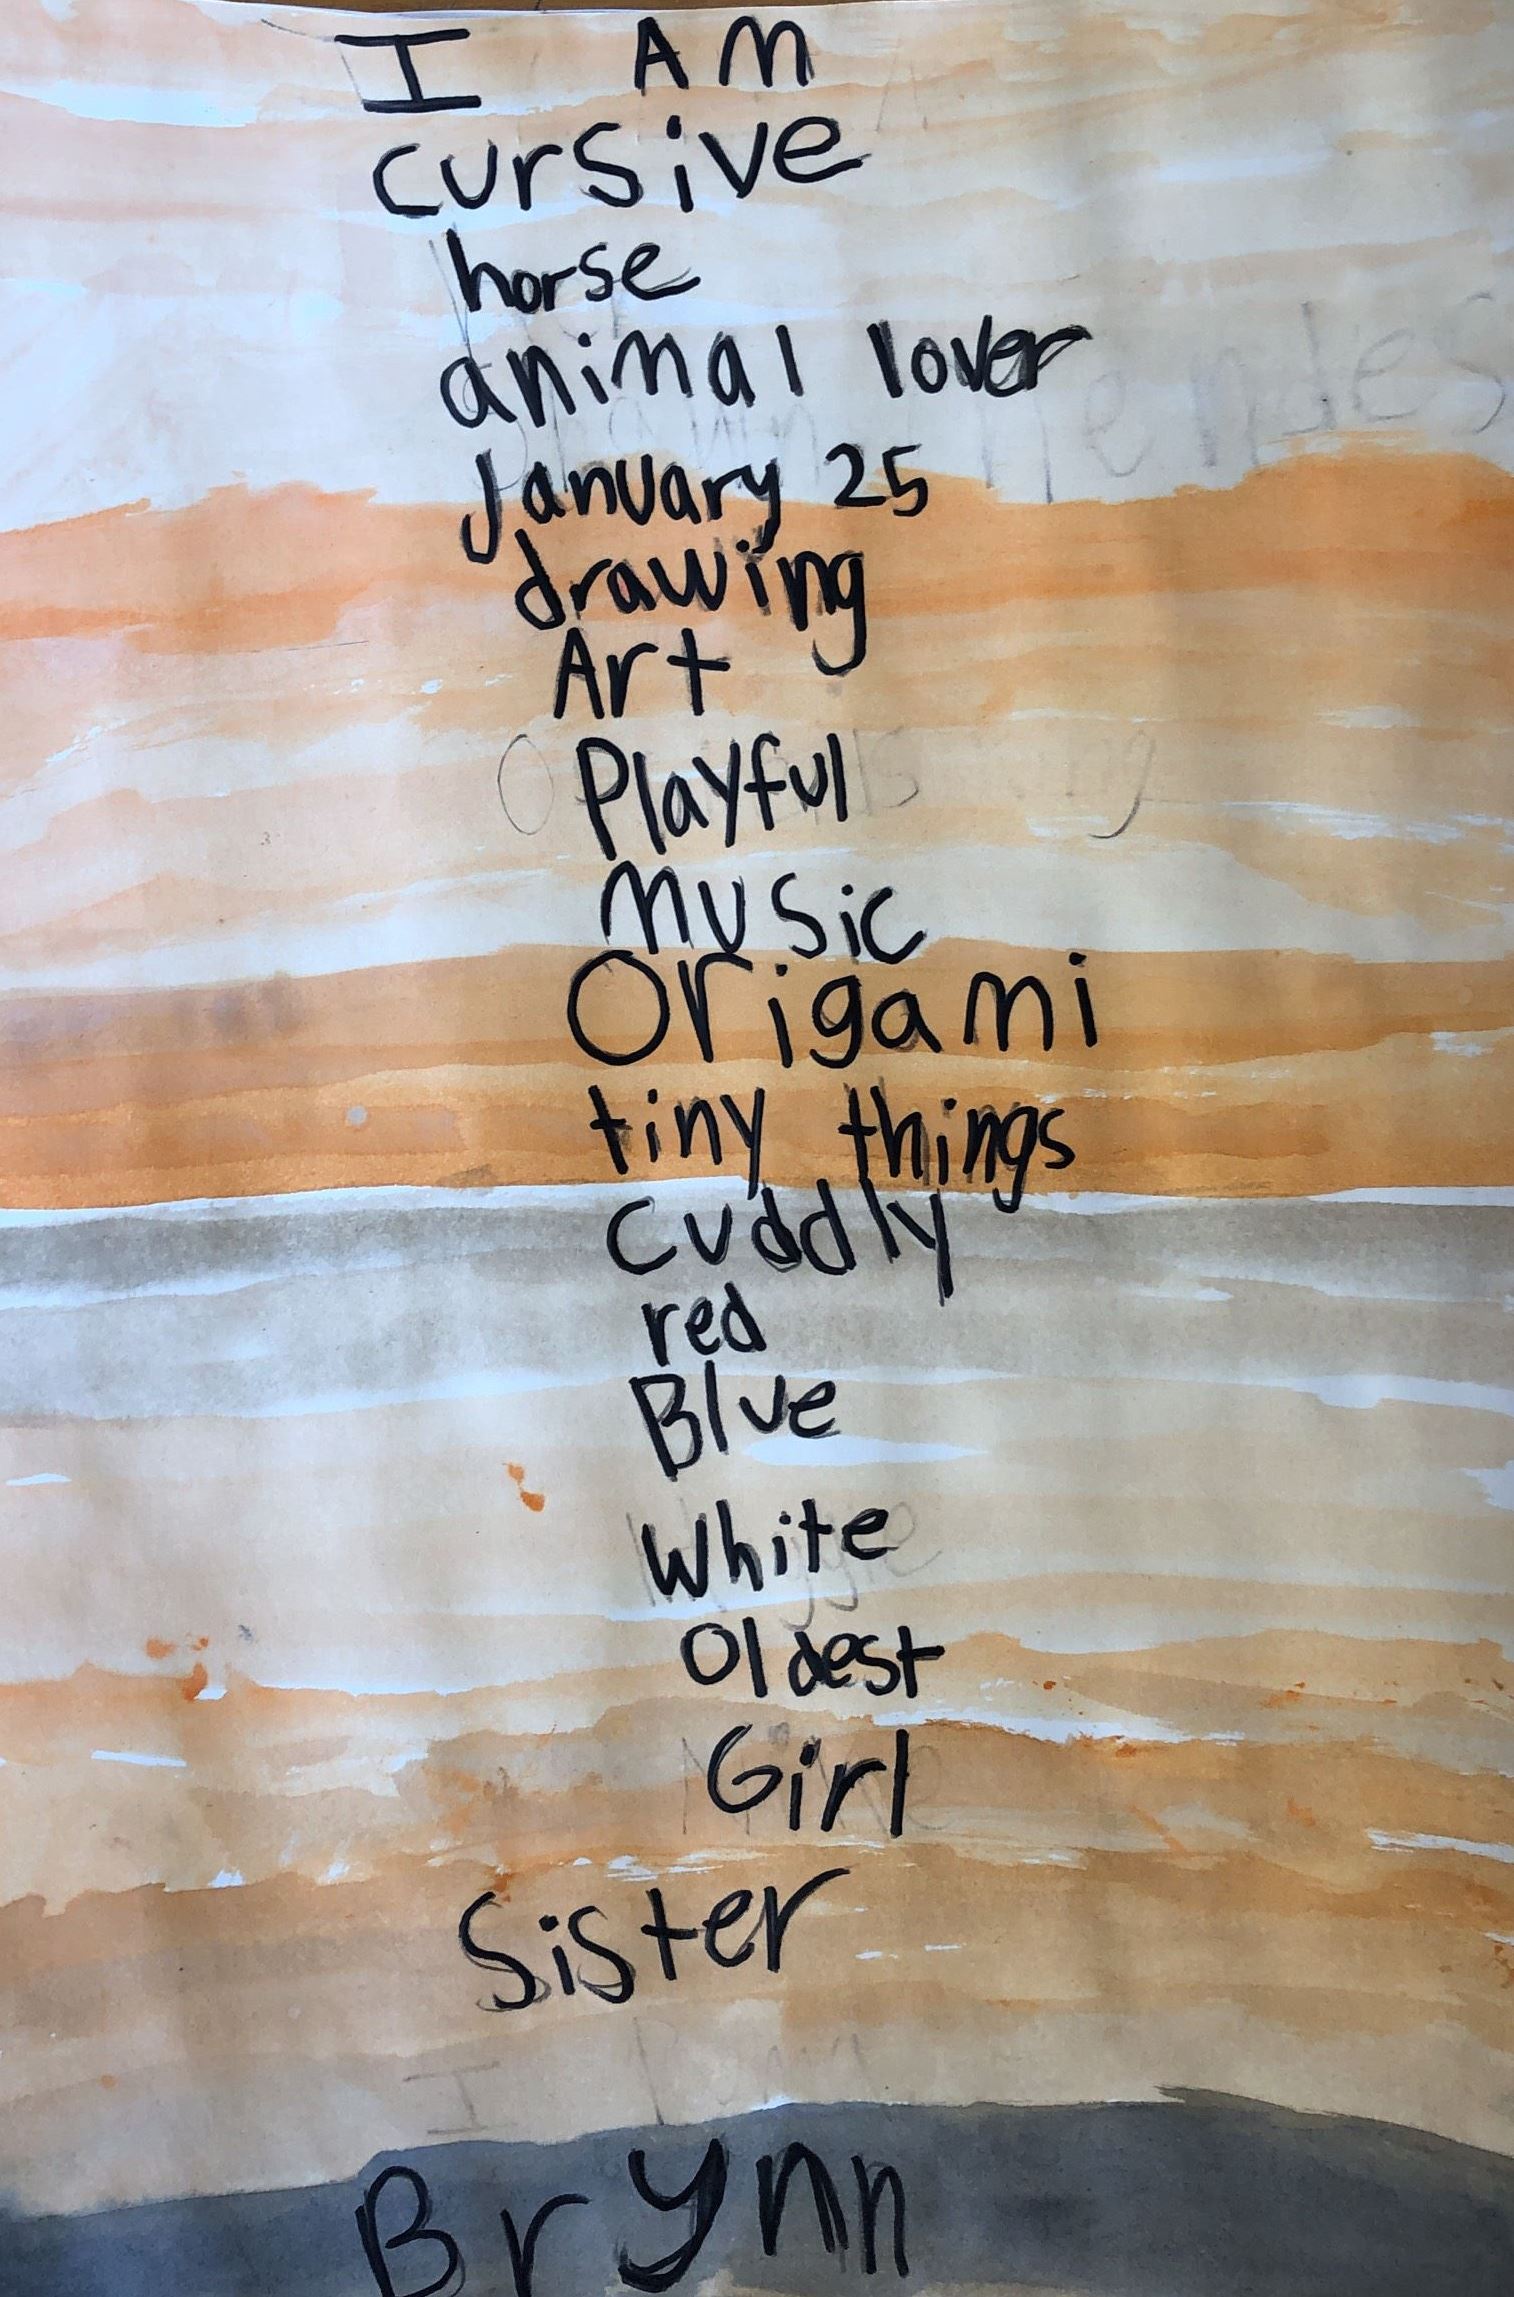 I AM
cursive
horse
animal lover
January 25
drawing
Art
Playful
music
Origami
tiny things
cuddly
red
Blue
White
Oldest
Girl
Sister
Brynn